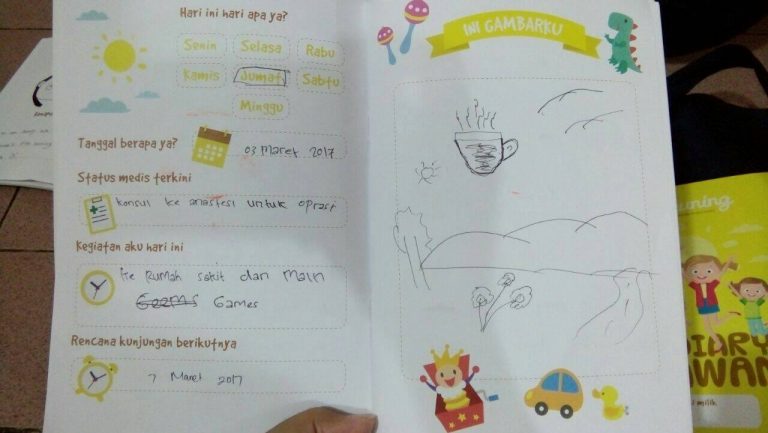 Hari ini hari apa ya?
Senin Selasa Rabu
Kamis Jumat Sabtu
Minggu
Tanggal berapa ya?
03 Maret 2017
Status medis terkini
konsul ke anastesi untuk oprasi
Kegiatan aku hari ini
ke Rumah sakit dan Main
Games
Rencana kunjungan berikutnya
7 Maret 2017
INI GAMBARKU
uning
DIARY
WAN
milik